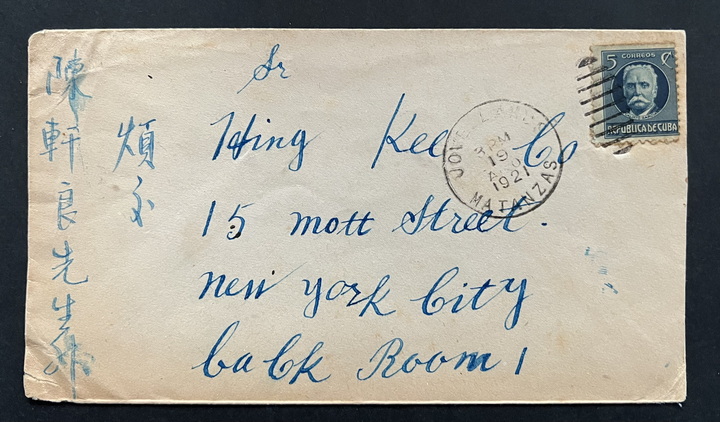 陳軒良先生
煩交
Sr
Hing Kee Co
15 mott Street.
new york City
back Room 1
5 CORREOS C
REPUBLICA DE CUBA
JOVELLANOS
3 PM
19
AGO
1921
MATANZAS